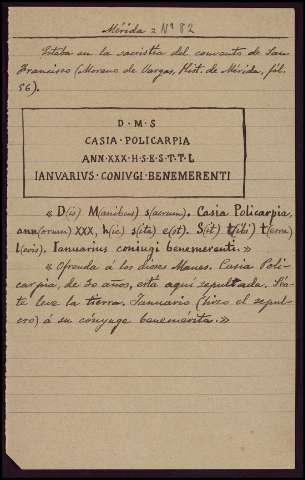 Mérida = Nº 82
Estaba en la sacristía del convento de San
Francisco (Moreno de Vargas, Hist. de Mérida, fol.
56).
D · M · S
CASIA · POLICARPIA
ANN · XXX · H · S · E · S · T · T · L
IANVARIVS · CONIVGI · BENEMERENTI
« D(is) M(anibus) s(acrum). Casia Policarpia,
ann(orum) XXX, h(ic) s(ita) e(st). S(it) t(ibi) t(erra)
l(evis). Ianuarius coniugi benemerenti. »
« Ofrenda á los dioses Manes. Casia Poli-
carpia, de 30 años, está aquí sepultada. Séa-
te leve la tierra. Januario (hizo el sepul-
cro) á su cónyuge benemérita. »